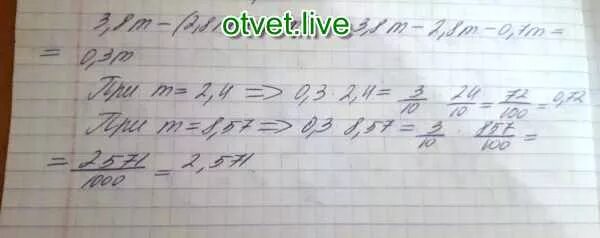 otvet.live
3,8m - (2,8m 3,8m - 2,8m - 0,7m =
= 0,3m
При m = 2,4 => 0,3 · 2,4 = 3/10 24/10 = 72/100 = 0,72
При m = 8,57 => 0,3 8,57 = 3/10 · 857/100 =
= 2571/1000 = 2,571